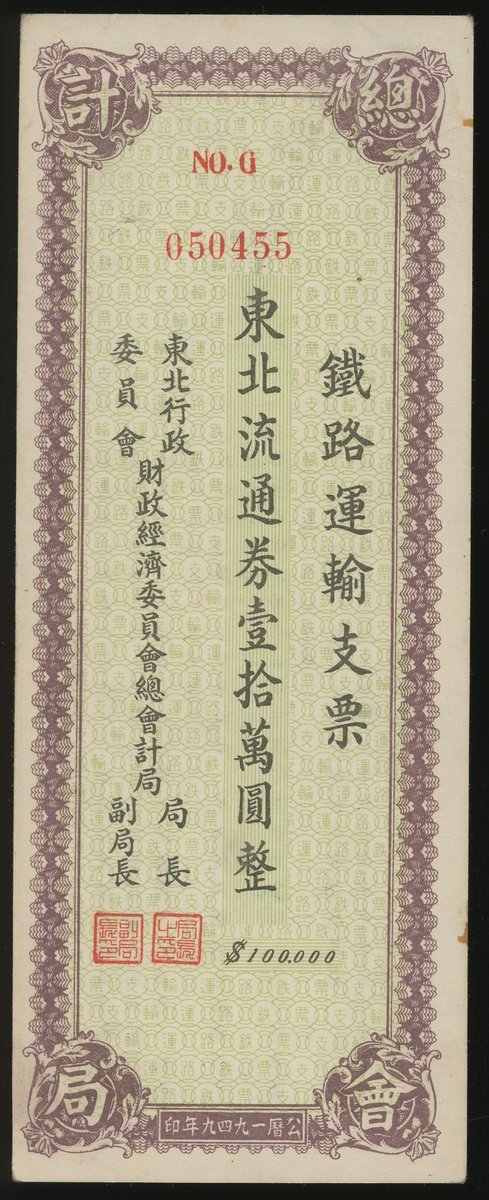 總
會
計
局
NO. G
050455
鐵路運輸支票
東北流通券壹拾萬圓整
$100.000
東北行政
委員會
財政經濟委員會總會計局
局長
副局長
局長之印
副局長印
公曆一九四九年印